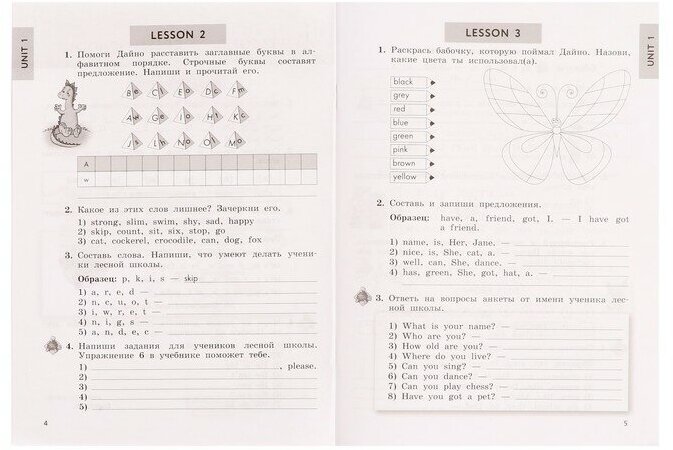 UNIT 1
LESSON 2
1. Помоги Дайно расставить заглавные буквы в ал-
фавитном порядке. Строчные буквы составят
предложение. Напиши и прочитай его.
Be Cl Eo Dc Fm
Aw Ge Io Ht Kc
Js Ln No Ol Mo
A
w
2. Какое из этих слов лишнее? Зачеркни его.
1) strong, slim, swim, shy, sad, happy
2) skip, count, sit, six, stop, go
3) cat, cockerel, crocodile, can, dog, fox
3. Составь слова. Напиши, что умеют делать учени-
ки лесной школы.
Образец: p, k, i, s — skip
1) a, r, e, d —
2) n, c, u, o, t —
3) i, w, r, e, t —
4) n, i, g, s —
5) a, n, d, e, c —
4. Напиши задания для учеников лесной школы.
Упражнение 6 в учебнике поможет тебе.
1) , please.
2)
3)
4)
5)
4
LESSON 3
UNIT 1
1. Раскрась бабочку, которую поймал Дайно. Назови,
какие цвета ты использовал(а).
black
grey
red
blue
green
pink
brown
yellow
2. Составь и запиши предложения.
Образец: have, a, friend, got, I. — I have got
a friend.
1) name, is, Her, Jane. —
2) nice, is, She, cat, a. —
3) well, can, She, dance. —
4) has, green, She, got, hat, a. —
3. Ответь на вопросы анкеты от имени ученика лес-
ной школы.
1) What is your name? —
2) Who are you? —
3) How old are you? —
4) Where do you live? —
5) Can you sing? —
6) Can you dance? —
7) Can you play chess? —
8) Have you got a pet? —
5